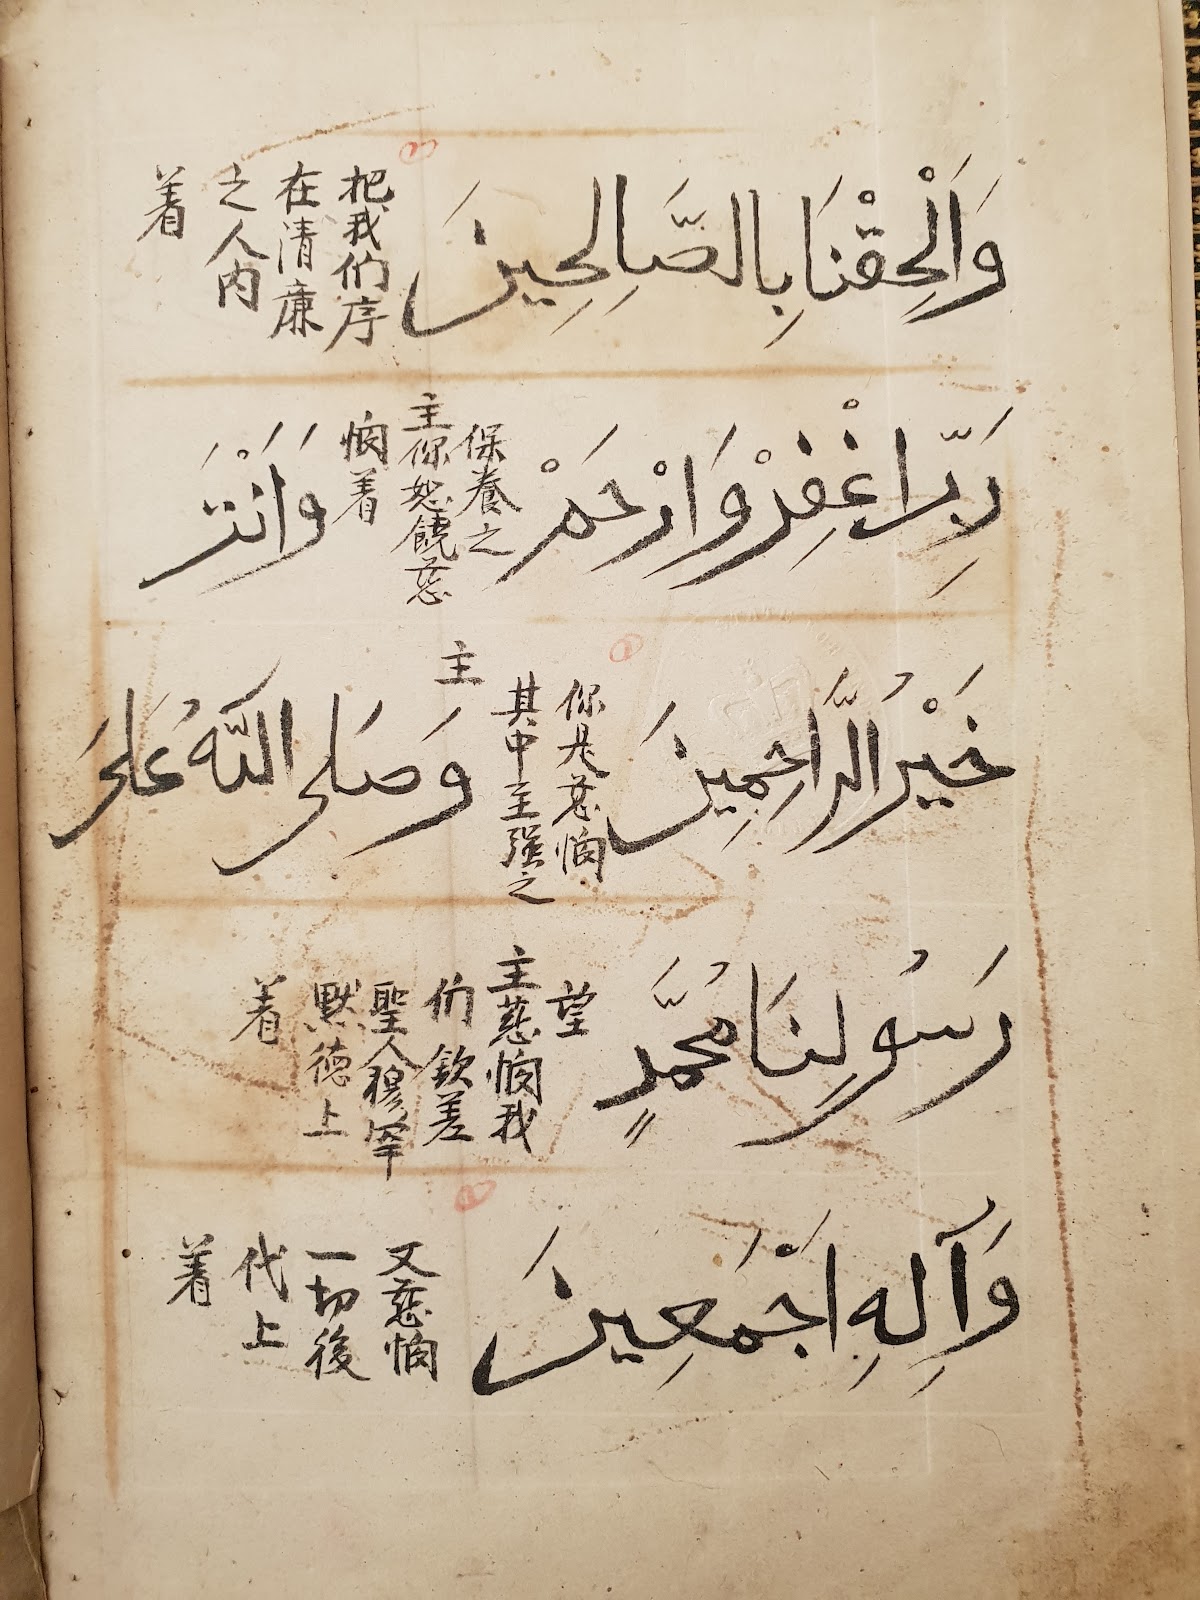 وَاَلْحِقْنَا بِالصَّالِحِينَ
把我们序
在清廉
之人内
着
رَبِّ اغْفِرْ وَارْحَمْ
保養之
主你恕饒慈
憫着
وَاَنْتَ
خَيْرُ الرَّاحِمِينَ
你是慈憫
其中至強之
主
وَصَلَى اللّٰهُ عَلَى
رَسُولِنَا مُحَمَّدٍ
望
主慈憫我
们欽差
聖人穆罕
默德上
着
وَآلِهِ اَجْمَعِينَ
又慈憫
一切後
代上
着